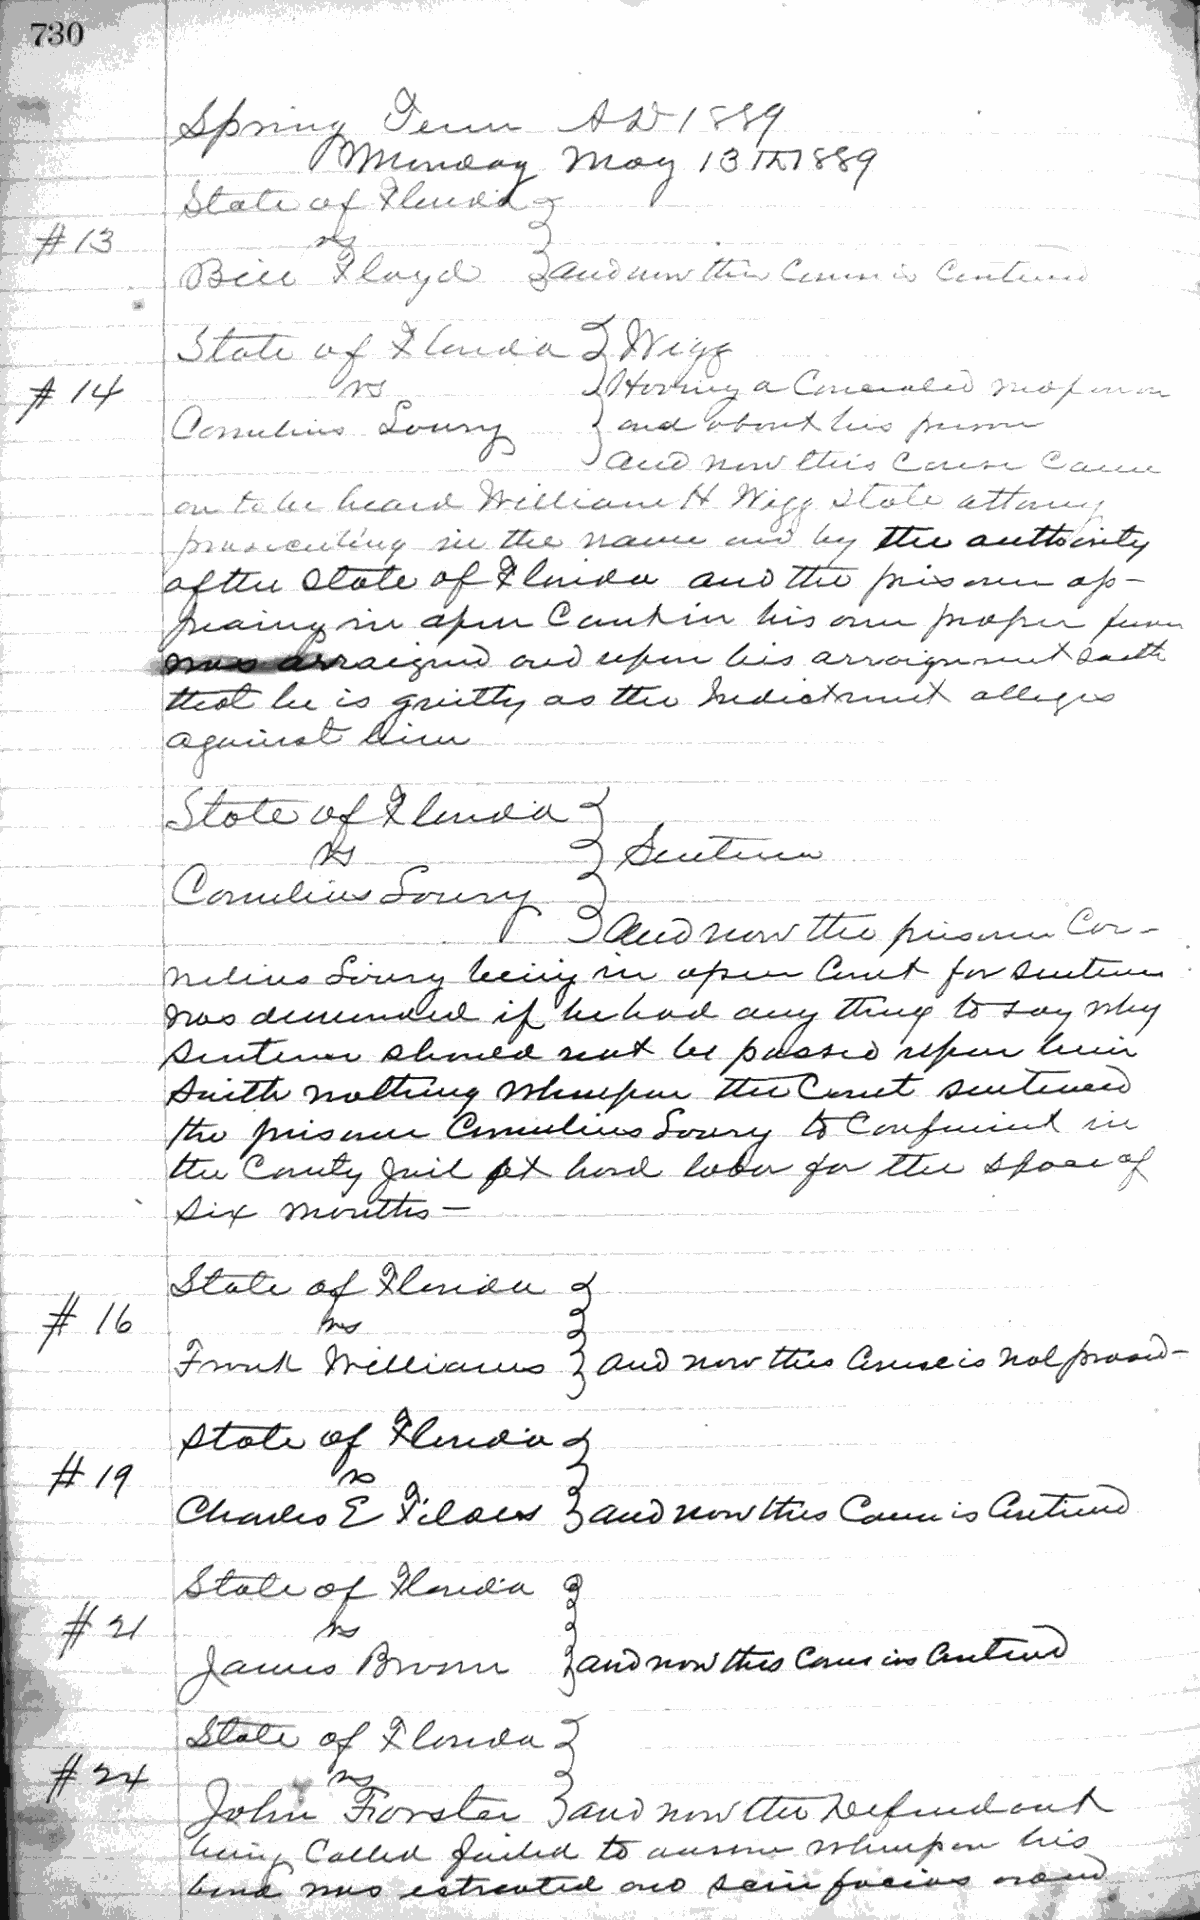 730
Spring Term AD 1889
Monday May 13th 1889
State of Florida
#13 vs
Bill Floyd and now this Cause is Continued
State of Florida Wigg
#14 vs Having a Concealed weapon on
Cornelius Loury and about his person
and now this Cause Came
on to be heard William H Wigg State attorney
prosecuting in the name and by the authority
of the State of Florida and the prisoner ap-
pearing in open Court in his own proper person
was arraigned and upon his arraignment saith
that he is guilty as the Indictment alleges
against him
State of Florida
vs Sentence
Cornelius Loury
and now the prisoner Cor-
nelius Loury being in open Court for sentence
was demanded if he had any thing to say why
Sentence should not be passed upon him
Saith nothing Whereupon the Court sentenced
the prisoner Cornelius Loury to Confinement in
the County Jail at hard labor for the space of
Six months —
State of Florida
#16 vs
Frank Williams and now this Cause is nol prosed —
State of Florida
#19 vs
Charles E and now this Cause is Continued
State of Florida
#21 vs
James Brown and now this Cause is Continued
State of Florida
#24 vs
John Forster and now the Defendant
being Called failed to answer whereupon his
bond was estreated and scire facias